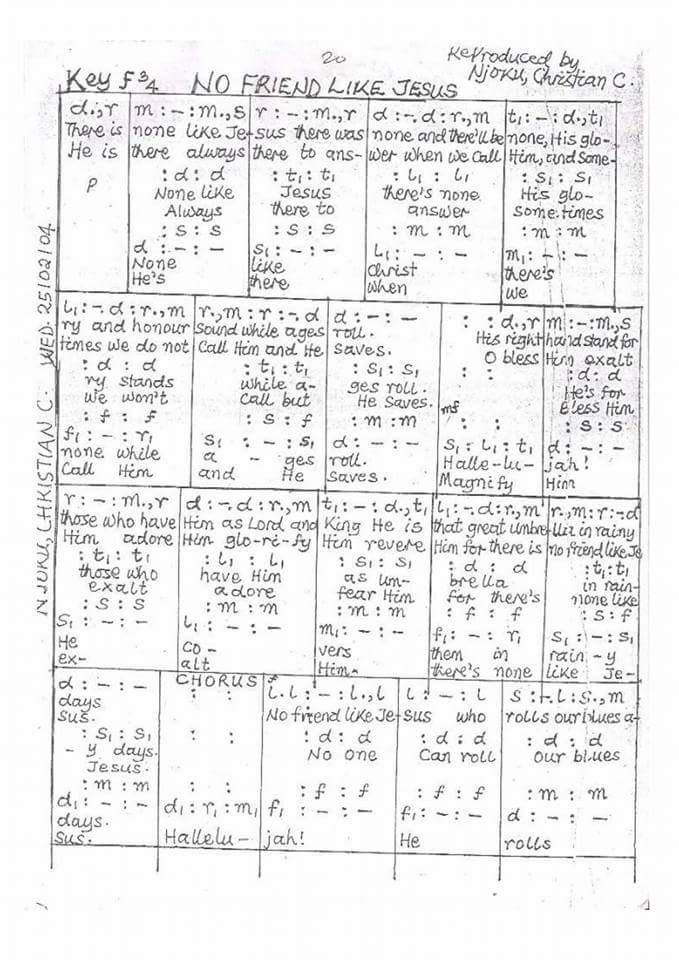 20
Reproduced by
Njoku, Christian C.
Key F 3/4 NO FRIEND LIKE JESUS
NJOKU, CHRISTIAN C. WED. 25/02/04
d.,r m : – : m.,s r : – : m.,r d : –. d : r.,m t₁ : – : d.,t₁
There is none like Je- sus there was none and there'll be none, His glo-
He is there always there to ans- wer when we call Him, and Some-
: d : d : t₁ : t₁ : l₁ : l₁ : s₁ : s₁
P None like Jesus there's none His glo-
Always there to answer some times
: s : s : s : s : m : m : m : m
d : – : – s₁ : – : – l₁ : – : – m₁ : – : –
None like Christ there's
He's there when we
l₁ : –. d : r.,m r.,m : r : –. d d : – : – : : d.,r m : – : m.,s
ry and honour Sound while ages roll. His right hand stand for
times we do not Call Him and He saves. O bless Him exalt
: d : d : t₁ : t₁ : s₁ : s₁ : : : d : d
ry stands while a- ges roll. He's for
we won't Call but He saves. Bless Him
: f : f : s : f : m : m mf : : : s : s
f₁ : – : r₁ s₁ : – : s₁ d : – : – s₁ : l₁ : t₁ d : – : –
none while a - ges roll. Halle-lu- jah!
Call Him and He saves. Magnify Him
r : – : m.,r d : –. d : r.,m t₁ : – : d.,t₁ l₁ : –. d : r.,m r.,m : r : –. d
those who have Him as Lord and King He is that great umbre- lla in rainy
Him adore Him glo-ri-fy Him revere Him for there is no friend like Je
: t₁ : t₁ : l₁ : l₁ : s₁ : s₁ : d : d : t₁ : t₁
those who have Him as um- brella in rain-
exalt adore fear Him for there's none like
: s : s : m : m : m : m : f : f : s : f
s₁ : – : – l₁ : – : – m₁ : – : – f₁ : – : r₁ s₁ : – : s₁
He co- vers them in rain-y
ex- alt Him- there's none like Je-
CHORUS
d : – : – : : l.l : – : l.,l l : – : l s : –. l : s.,m
days No friend like Je- sus who rolls our blues a-
sus.
: s₁ : s₁ : : : d : d : d : d : d : d
- y days. No one Can roll Our blues
Jesus.
: m : m : : : f : f : f : f : m : m
d₁ : – : – d₁ : r₁ : m₁ f₁ : – : – f₁ : – : – d : – : –
days. Hallelu- jah! He rolls
sus.